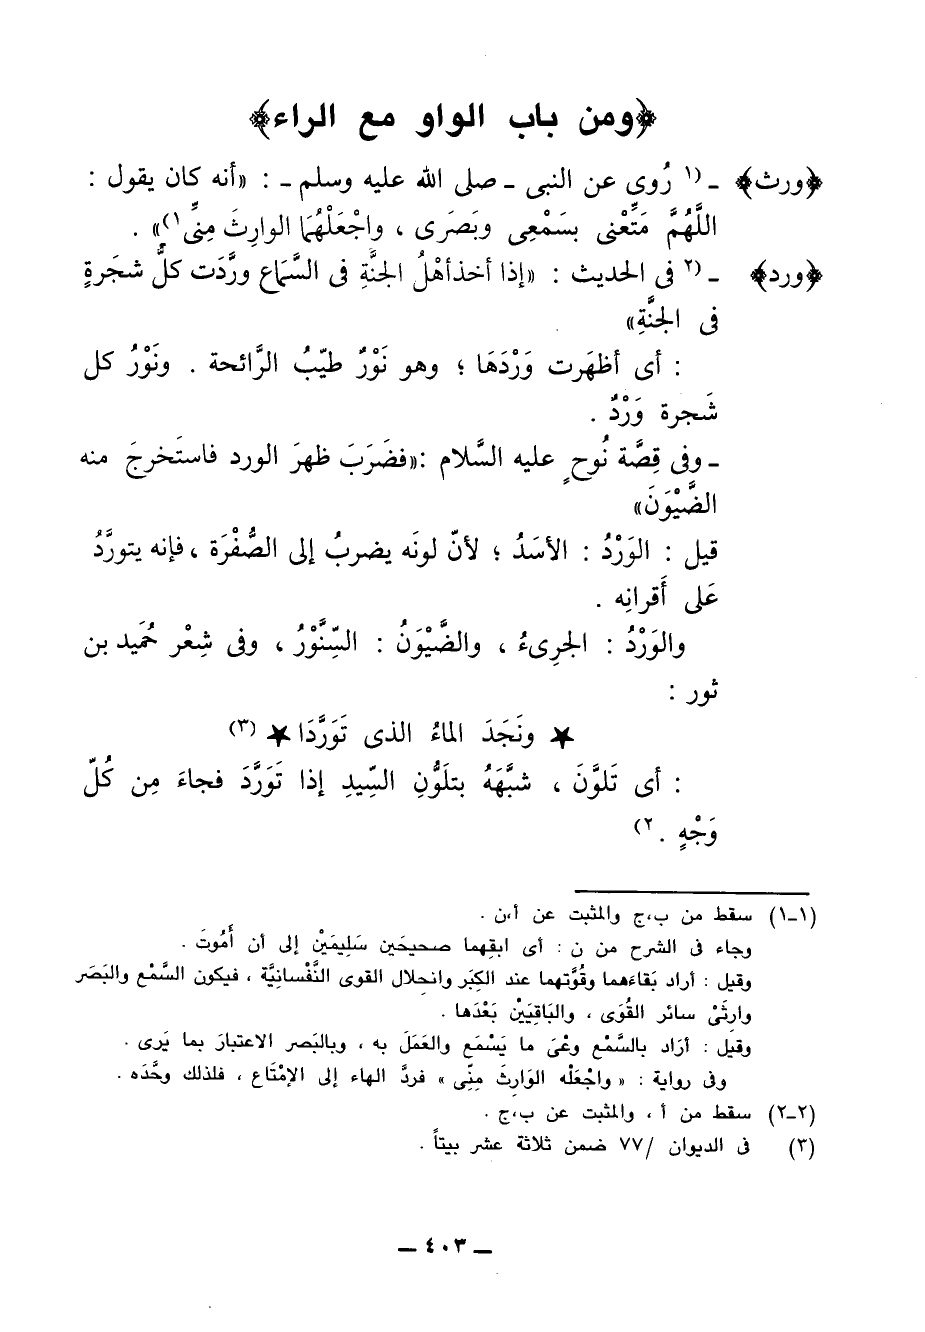 ﴿ومن باب الواو مع الراء﴾
﴿ورث﴾ ـ (١ رُوى عن النبى ـ صلى الله عليه وسلم ـ : «أنه كان يقول :
اللَّهُمَّ مَتِّعْنى بسَمْعِى وبَصَرَى ، واجْعَلْهُما الوارِثَ مِنِّى ١)» .
﴿ورد﴾ ـ (٢ فى الحديث : «إذا أخذ أهْلُ الجنَّةِ فى السَّمَاع ورَّدَت كلُّ شجَرةٍ
فى الجنَّةِ»
: أى أظهَرت وَرْدَهَا ؛ وهو نَوْرٌ طيّبُ الرَّائحة . ونَوْرُ كل
شَجرة وَرْدٌ .
ـ وفى قِصَّة نُوحٍ عليه السَّلام :«فضَرَبَ ظهرَ الورد فاستَخرجَ منه
الضَّيْوَنَ»
قيل : الوَرْدُ : الأسَدُ ؛ لأنّ لونَه يضربُ إلى الصُّفْرَة ، فإنه يتورَّدُ
عَلى أَقرانِه .
والوَرْدُ : الجرِىءُ ، والضَّيْوَنُ : السِّنَّوْرُ ، وفى شِعْر حُمَيد بن
ثور :
★ ونَجَدَ الماءُ الذى تَوَرَّدَا ★ (٣)
: أى تَلوَّنَ ، شبَّهَهُ بتلَوُّنِ السِّيدِ إذا تَوَرَّدَ فجاءَ مِن كُلّ
وَجْهٍ . ٢)
(١ـ١) سقط من ب،ج والمثبت عن أ،ن .
وجاء فى الشرح من ن : أى ابقِهما صحيحَين سَلِيمَيْن إلى أن أَمُوتَ .
وقيل : أراد بَقاءَهما وقُوَّتهما عند الكِبَر وانحلال القوى النَّفْسانِيَّة ، فيكون السَّمْع والبَصَر
وارِثَىْ سائر القُوَى ، والبَاقِيَيْن بَعْدَها .
وقيل : أرَاد بالسَّمْع وعْىَ ما يَسْمَع والعَمَلَ به ، وبالبَصر الاعتبارَ بما يَرى .
وفى رواية : « واجْعَلْه الوَارِثَ مِنِّى » فردَّ الهاء إلى الإمْتَاع ، فلذلك وحَّدَه .
(٢ـ٢) سقط من أ ، والمثبت عن ب،ج .
(٣) فى الديوان /٧٧ ضمن ثلاثة عشر بيتاً .
ـ ٤٠٣ ـ